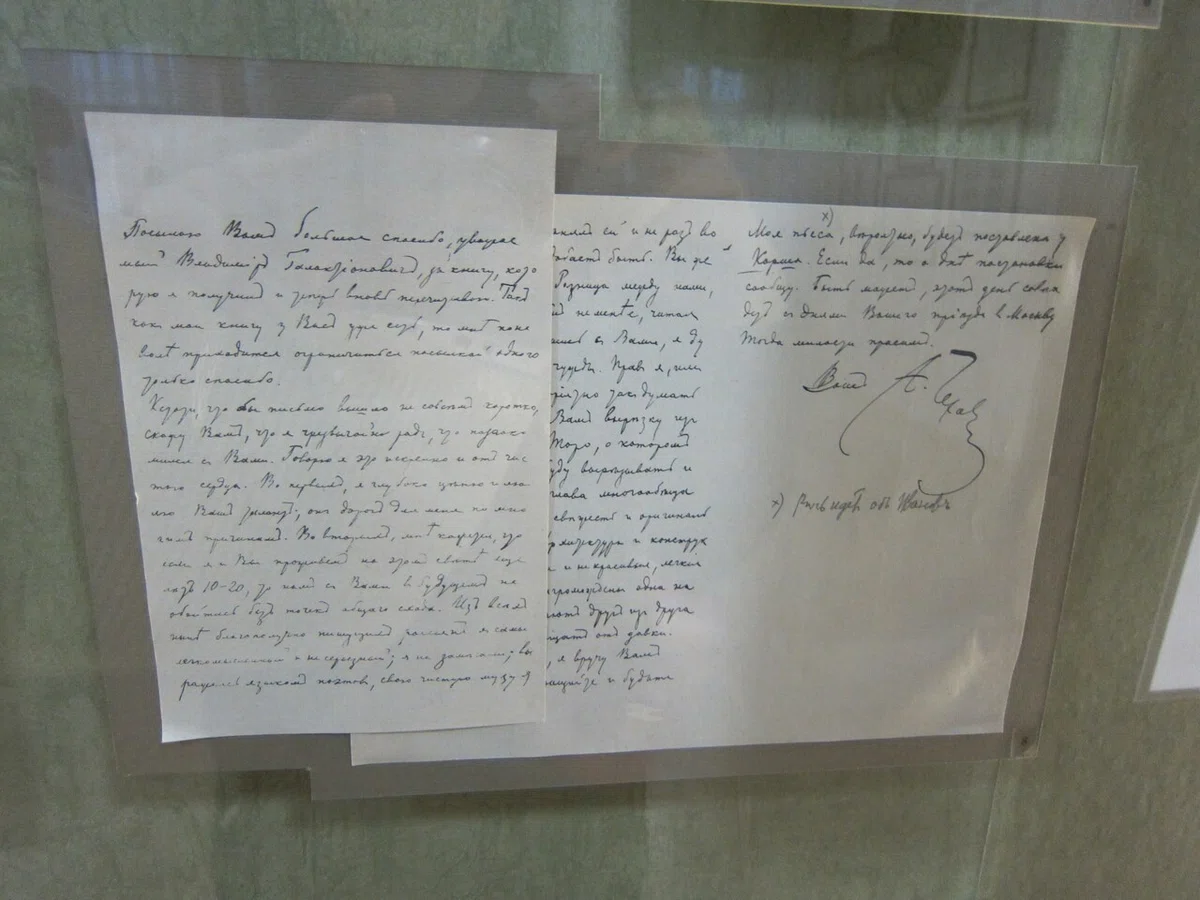 Посылаю Вамъ большое спасибо, уважае
мый Владиміръ Галактіоновичъ, за книгу, кото
рую я получилъ и теперь вновь перечитываю. Такъ
какъ мои книги у Васъ уже есть, то мнѣ поне
волѣ приходится ограничиться посылкой одного
только спасибо.
Кстати, что бы письмо вышло не совсѣмъ коротко,
скажу Вамъ, что я чрезвычайно радъ, что познако
мился съ Вами. Говорю я это искренно и отъ чис
таго сердца. Во первыхъ, я глубоко цѣню и люб
лю Вашъ талантъ; онъ дорогъ для меня по мно
гимъ причинамъ. Во вторыхъ, мнѣ кажется, что
если я и Вы проживемъ на этомъ свѣтѣ еще
лѣтъ 10-20, то намъ съ Вами въ будущемъ не
обойтись безъ точекъ общаго схода. Изъ всѣхъ
нынѣ благополучно пишущихъ россіянъ я самый
легкомысленный и несерьезный; я на замѣчаніи; вы
ражаясь языкомъ поэтовъ, свою чистую музу я
мѣнялъ ей и не разъ во
добаетъ быть. Вы же
Разница между нами,
не менѣе, читая
шись съ Вами, я ду
чужды. Правъ я, или
пріятно такъ думать
Вамъ вырѣзку изъ
Торо, о которомъ
буду вырѣзывать и
глава многообѣща
свѣжесть и оригиналь
Архитектура и конструк
и некрасивыя, легкія
нагромождены одна на
маютъ другъ изъ друга
пищатъ отъ давки.
, я вручу Вамъ
прощайте и будьте
x)
Моя пьеса, вѣроятно, будетъ поставлена у
Корша. Если да, то о днѣ постановки
сообщу. Быть можетъ, этотъ день совпа
детъ съ днями Вашего пріѣзда въ Москву
Тогда милости просимъ.
Вашъ А. Чеховъ
x) Рѣчь идетъ объ Ивановѣ